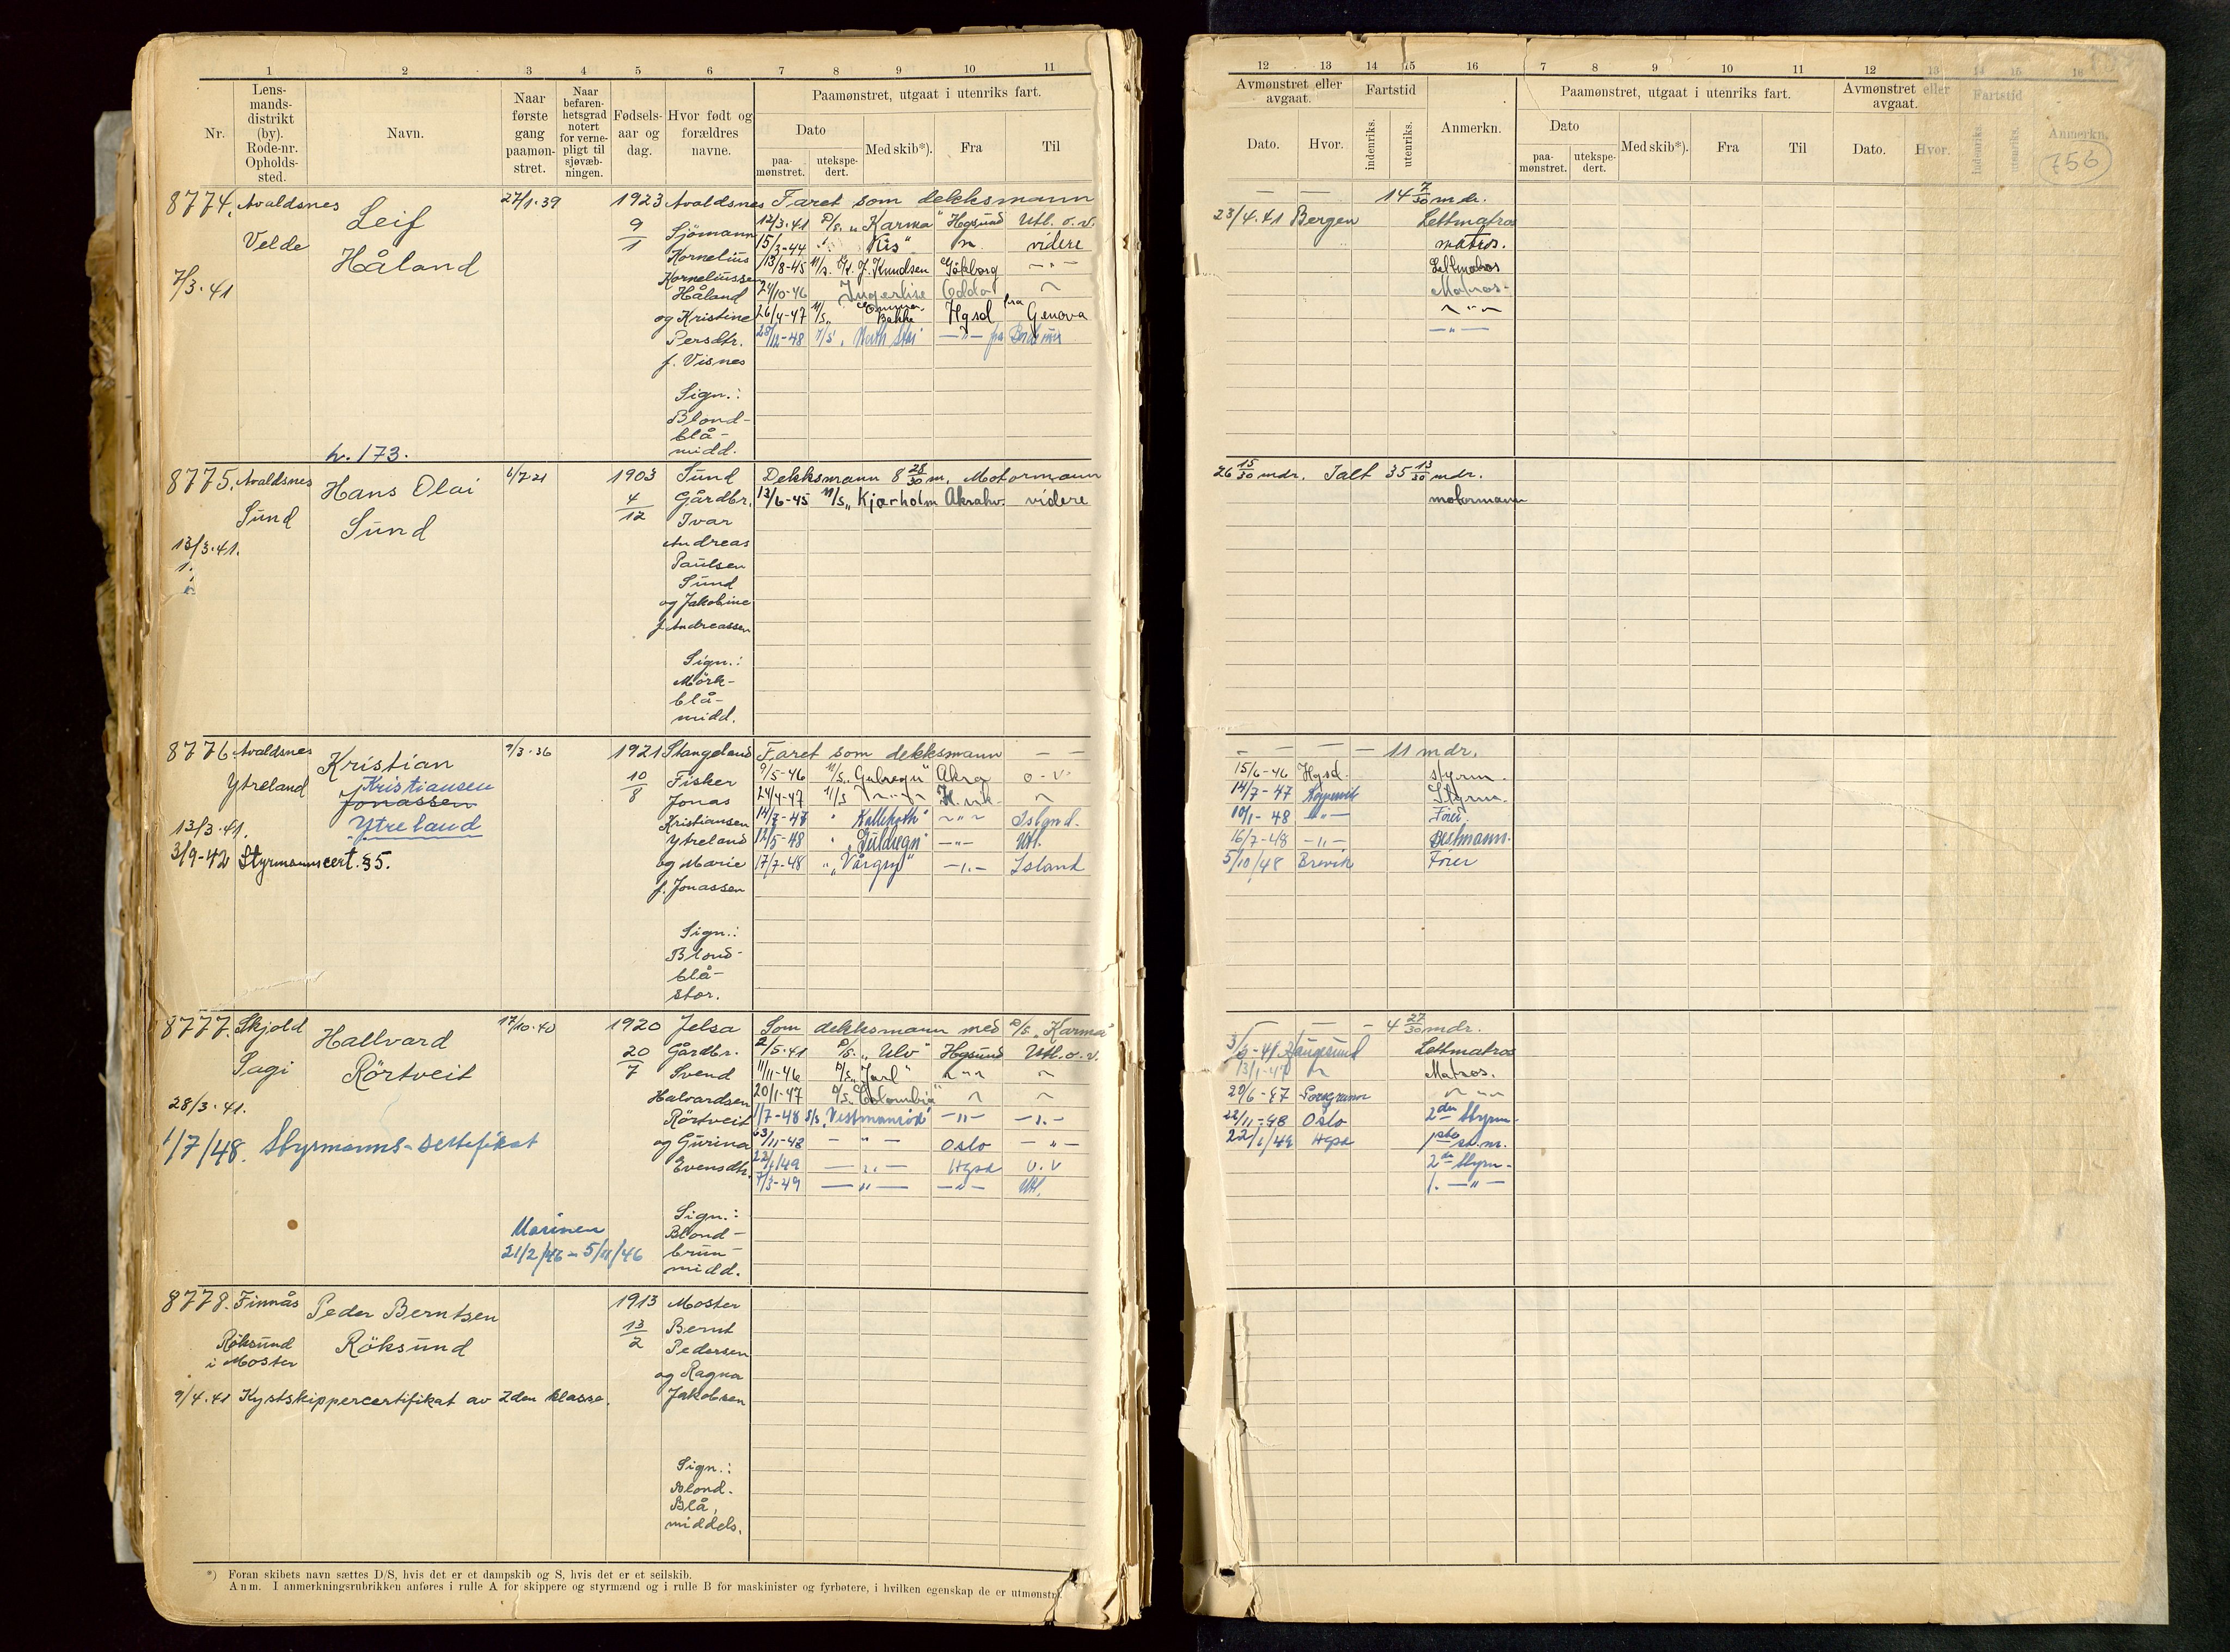 1 2 3 4 5 6 7 8 9 10 11
Nr.
Lens-
mands-
distrikt
(by).
Rode-nr.
Opholds-
sted.
Navn.
Naar
første
gang
paamøn-
stret.
Naar
befaren-
hetsgrad
notert
for verne-
pligt til
sjøvæb-
ningen.
Fødsels-
aar og
dag.
Hvor født og
forældres
navne.
Paamønstret, utgaat i utenriks fart.
Dato
paa-
mønstret.
utekspe-
dert.
Med skib*).
Fra
Til
8774. Avaldsnes
Velde
7/3.41
Leif
Håland
h. 173.
27/1.39
1923
9/1
Avaldsnes
Sjömann
Kornelius
Kornelius­sen
Håland
og Kristine
Persdtr.
f. Visnes
Sign.:
Blond-
blå-
midd.
Faret som dekksmann
12/3.41 D/S. "Karma" Hgsund Utl. o. v.
15/3-44 "Kis" " videre
13/8-45 M/S. Kr. J. Knudsen Gökborg - " -
24/10-46 Ingerlise Odda "
26/4-47 M/S. Emma Bakke Hgsd fra Genova
28/12-48 North Star - " -
8775. Avaldsnes
Sund
13/3.41.
Hans Olai
Sund
6/7.21
1903
4/12
Sund
Gårdbr.
Ivar
Andreas
Paulsen
Sund
og Jakobine
f. Andreassen
Sign.:
Mörk-
blå-
midd.
Dekksmann 8 28/30 m. Motormann
13/6-45 M/S. "Kjærholm Akrahv. videre
8776. Avaldsnes
Ytreland
13/3.41.
3/9-42 Styrmannscert. §5.
Kristian
Kristiansen
Jonassen
Ytreland
9/3.36
1921
10/8
Stangeland
Fisker
Jonas
Kristiansen
Ytreland
og Marie
f. Jonassen
Sign.:
Blond-
blå-
stor.
Faret som dekksmann - -
9/5-46 M/S. "Gulregn" Akra o - v
24/4-47 M/S - " - "
14/7-47 " - " - Islgnd.
12/5-48 "Guldregn" - " - Utl.
17/7-48 "Vårgry" - " - Island
8777. Skjold
Sagi
28/3.41.
1/7/48. Styrmanns-sertifikat
Hallvard
Rörtveit
17/10.40
Marinen
21/2/46 - 5/11/46
1920
20/7
Jelsa
Gårdbr.
Svend
Halvardsen
Rörtveit
og Gurina
Evensdtr.
Sign.:
Blond-
brun-
midd.
Som dekksmann med D/S. "Karma"
2/5.41 D/S. "Ulv" Hgsund Utl. o. v.
11/11-46 D/S. "Jarl" " "
20/1-47 D/S. "Colombia" " "
1/7-48 S/S. "Vestmanröd" - " - - " -
23/11-48 - " - Oslo - " -
22/1/49 - " - Hgsd U. V
7/3-49 - " - - " - Utl.
8778. Finnås
Röksund
i Moster
9/4.41 Kystskippercertifikat av 2den klasse.
Peder Berntsen
Röksund
1913
13/2
Moster
Bernt
Pedersen
og Ragna
Jakobsen
Sign.:
Blond.
Blå,
middels.
*) Foran skibets navn sættes D/S, hvis det er et dampskib og S, hvis det er et seilskib.
Anm. I anmerkningsrubrikken anføres i rulle A for skippere og styrmænd og i rulle B for maskinister og fyrbøtere, i hvilken egenskap de er utmønstr
12 13 14 15 16 7 8 9 10 11 12 13 14 15 16
Avmønstret eller
avgaat.
Dato. Hvor.
Fartstid
indenriks.
utenriks.
Anmerkn.
Paamønstret, utgaat i utenriks fart.
Dato
paa-
mønstret.
utekspe-
dert.
Med skib*).
Fra
Til
Avmønstret eller
avgaat.
Dato. Hvor.
Fartstid
indenriks.
utenriks.
Anmerkn.
756
- - 14 7/30 mdr.
23/4.41 Bergen Lettmatros
matros.
Lettmatros
Matros-
- " -
- " -
26 15/30 mdr. Ialt 35 13/30 mdr.
motormann
- - - - 11 mdr.
15/6-46 Hgsd. styrm.
14/7-47 Styrm.
10/1-48 - " - Förer
16/7-48 - " - Bestmann.
5/10/48 Brevik Förer
- - - 4 27/30 mdr.
Haugesund Lettmatros
13/1-47 " Matros.
29/6-47 Porsgrunn - " -
22/11-48 Oslo 2den Styrm.
22/1/49 Hgsd 1ste st.m.
2den Styrm-
1. - " -